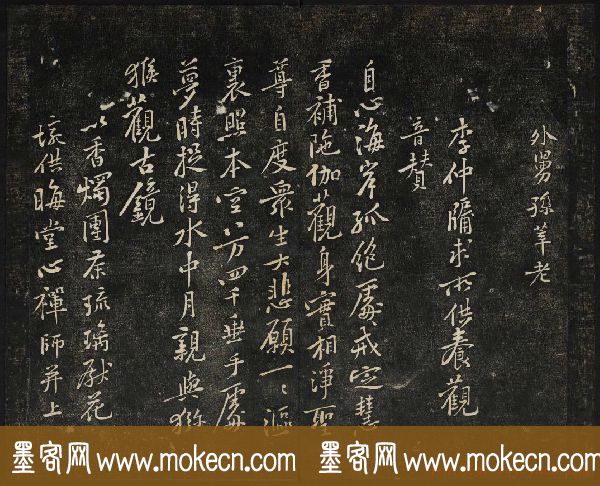 外舅孫莘老
李仲牖求所供養觀
音贊
自心海岸孤絶處戒定慧
香補陁伽觀身實相淨聖
尊自度衆生大悲願一々漚
裏照本空八万四千垂手處
夢時捉得水中月親與獼
猴觀古鏡
以香燭團茶琉璃獻花
垸供晦堂心禪師并上
墨客网 www.mokecn.com 墨客网 www.mokecn.com